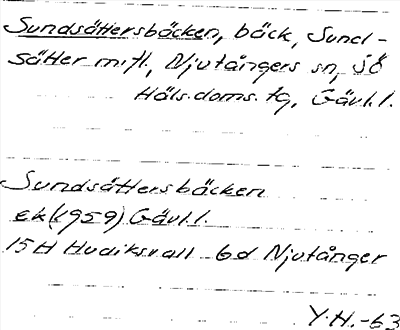 Sundsättersbäcken, bäck, Sund-
sätter m.fl., Njutångers sn, sö
Häls. doms. tg, Gävl.l.
Sundsättersbäcken
ek (1959) Gävl.l.
15H Hudiksvall 6d Njutånger
Y.H.-63